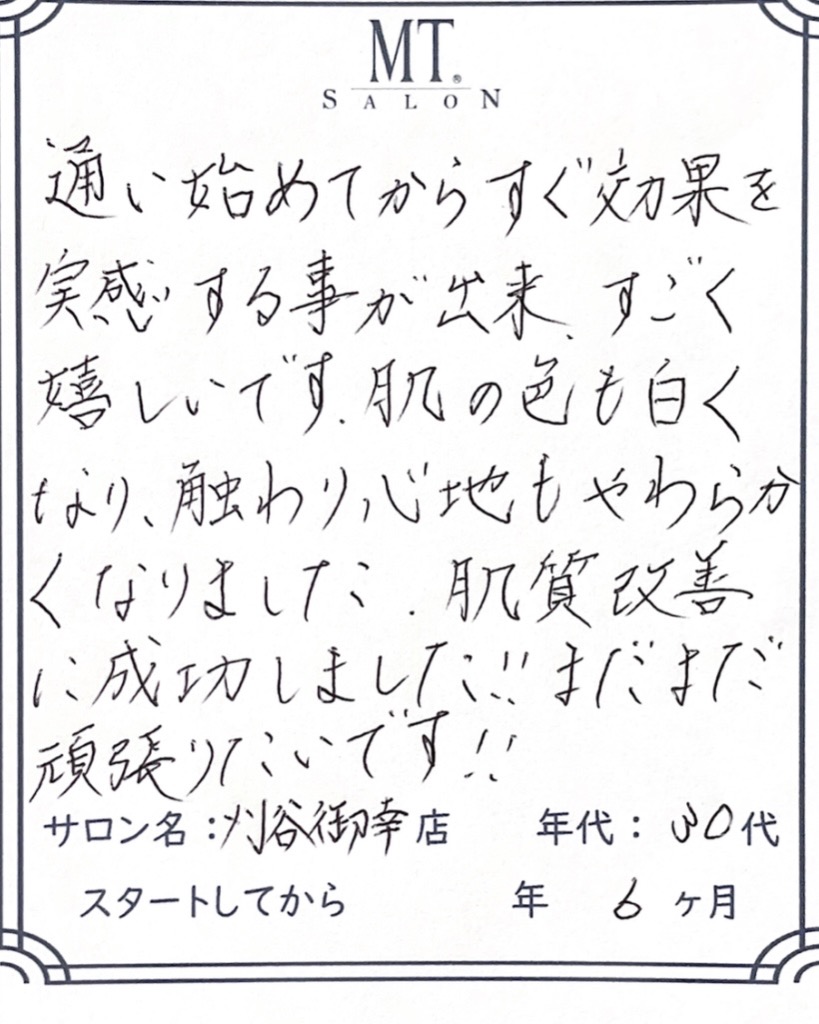 MT®
SALON
通い始めてからすぐ効果を
実感する事が出来、すごく
嬉しいです。肌の色も白く
なり、触わり心地もやわらか
くなりました。肌質改善
に成功しました!!まだまだ
頑張りたいです!!
サロン名:刈谷御幸店 年代:30代
スタートしてから 年 6ヶ月